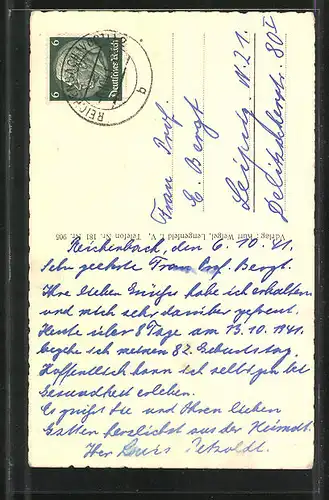 6 6
Deutsches Reich
Frau Prof.
E. Bergt
Leipzig N. 21.
Delitzscherstr. 80 I
Verlag: Kurt Weigel, Lengenfeld i. V. Telefon Nr. 181 Nr. 905
Reichenbach, den 6. 10. 41.
Sehr geehrte Frau Prof. Bergt.
Ihre lieben Grüße habe ich erhalten
und mich sehr darüber gefreut.
Heute über 8 Tage am 13. 10. 1941.
begehe ich meinen 82. Geburtstag.
Hoffentlich kann ich selbigen bei
Gesundheit erleben.
Es grüßt Sie und Ihren lieben
Gatten herzlichst aus der Heimat.
Ihr Louis Petzoldt.